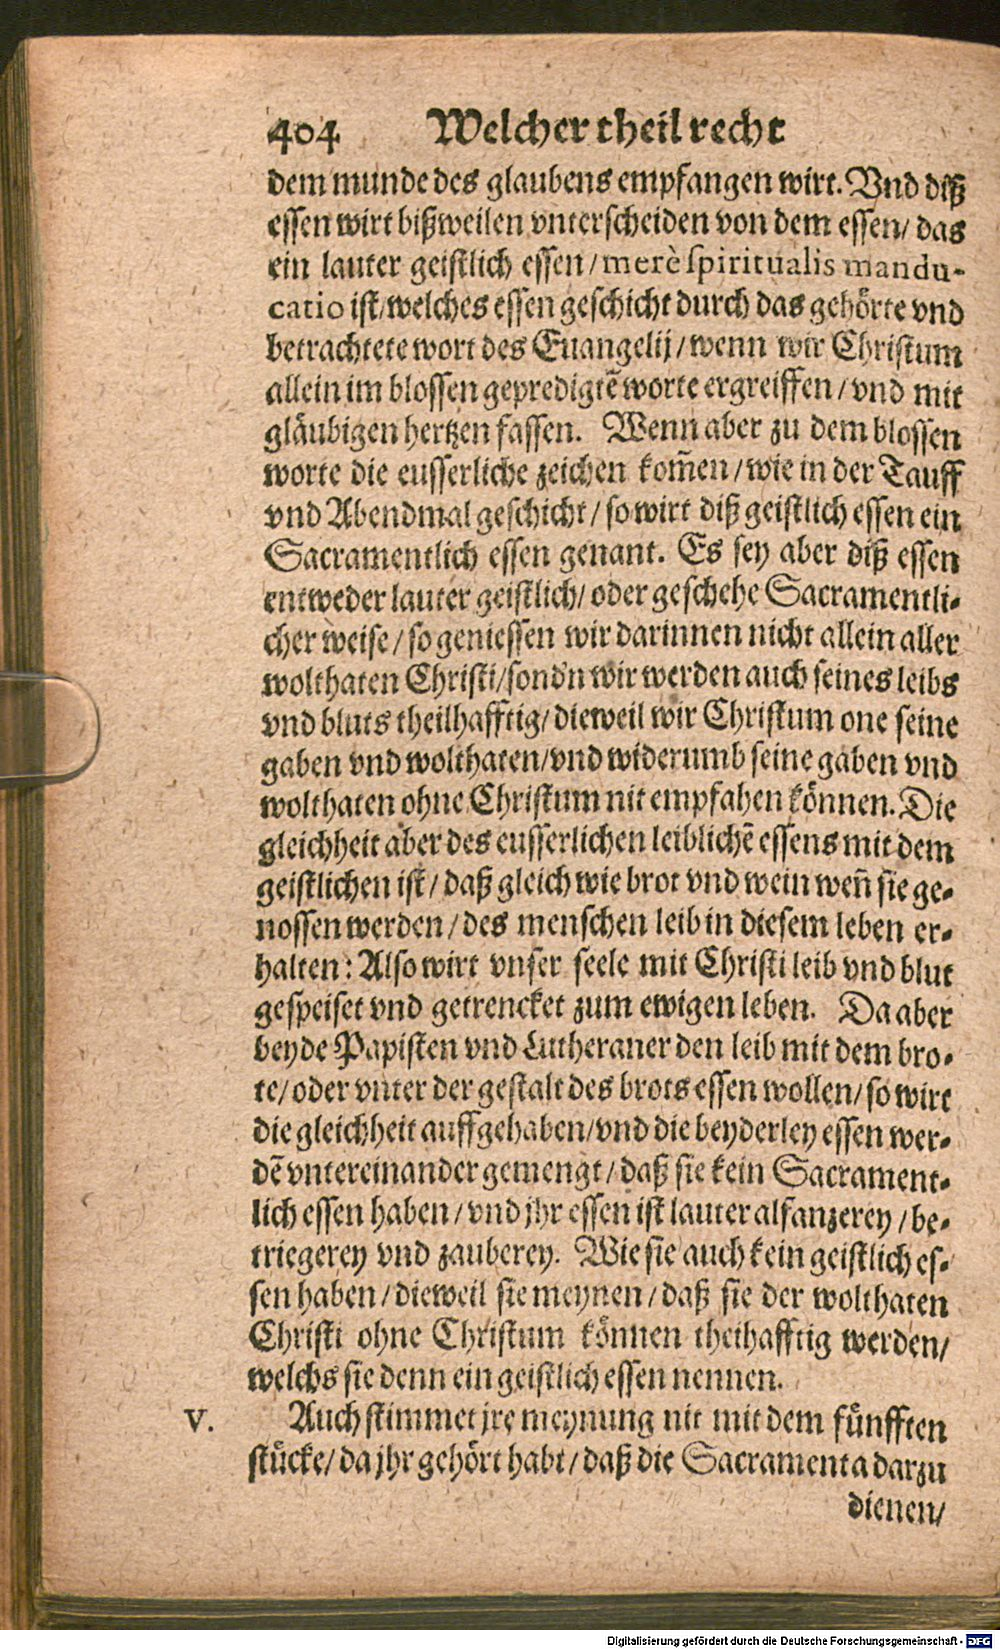 404 Welcher theil recht
dem munde des glaubens empfangen wirt. Vnd diß
essen wirt bißweilen vnterscheiden von dem essen/ das
ein lauter geistlich essen/ merè spiritualis mandu-
catio ist/ welches essen geschicht durch das gehörte vnd
betrachtete wort des Euangelij/ wenn wir Christum
allein im blossen gepredigtē worte ergreiffen/ vnd mit
gläubigen hertzen fassen. Wenn aber zu dem blossen
worte die eusserliche zeichen kom̄en/ wie in der Tauff
vnd Abendmal geschicht/ so wirt diß geistlich essen ein
Sacramentlich essen genant. Es sey aber diß essen
entweder lauter geistlich/ oder geschehe Sacramentli-
cher weise/ so geniessen wir darinnen nicht allein aller
wolthaten Christi/ sond'n wir werden auch seines leibs
vnd bluts theilhafftig/ dieweil wir Christum one seine
gaben vnd wolthaten/ vnd widerumb seine gaben vnd
wolthaten ohne Christum nit empfahen können. Die
gleichheit aber des eusserlichen leiblichē essens mit dem
geistlichen ist/ daß gleich wie brot vnd wein wen̄ sie ge-
nossen werden/ des menschen leib in diesem leben er-
halten: Also wirt vnser seele mit Christi leib vnd blut
gespeiset vnd getrencket zum ewigen leben. Da aber
beyde Papisten vnd Lutheraner den leib mit dem bro-
te/ oder vnter der gestalt des brots essen wollen/ so wirt
die gleichheit auffgehaben/ vnd die beyderley essen wer-
dē vntereinander gemengt/ daß sie kein Sacrament-
lich essen haben/ vnd jhr essen ist lauter alfanzerey/ be-
triegerey vnd zauberey. Wie sie auch kein geistlich es-
sen haben/ dieweil sie meynen/ daß sie der wolthaten
Christi ohne Christum können theihafftig werden/
welchs sie denn ein geistlich essen nennen.
V. Auch stimmet jre meynung nit mit dem fünfften
stücke/ da jhr gehört habt/ daß die Sacramenta darzu
dienen/
Digitalisierung gefördert durch die Deutsche Forschungsgemeinschaft - DFG